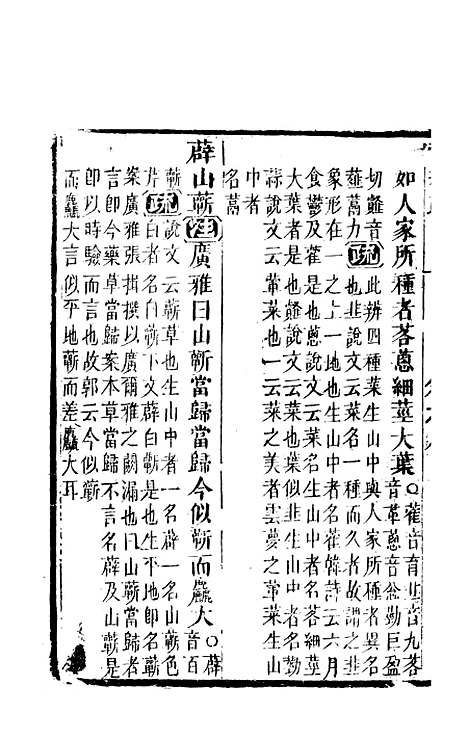 如人家所種者茖葱細莖大葉○藿音育山音九茖
音革葱音怱勍巨盈
切䪥音
薤蒚力
疏
此辨四種菜生山中與人家所種者異名
也韭說文云菜名一種而久者故謂之韭
象形在一之上一地也生山中者名藿韓詩云六月
食鬱及藿是也葱說文云菜名生山中者名茖細莖
大葉者是也䪥說文云菜也葉似韭生山中者名勍
蒜說文云葷菜也一云菜之美者雲夢之葷菜生山
中者
名蒚
薜山蘄注廣雅曰山蘄當歸當歸今似蘄而麤大○薜
音百
蘄
芹
疏
說文云蘄草也生山中者一名薜一名山蘄色
白者名白蘄下文薜白蘄是也生平地即名蘄
案廣雅張揖撰以廣爾雅之闕漏也曰山蘄當歸者
言即今藥草當歸案本草當歸不言名薜及山蘄是
即以時驗而言也故郭云今似蘄
而麤大言似平地蘄而差麤大耳